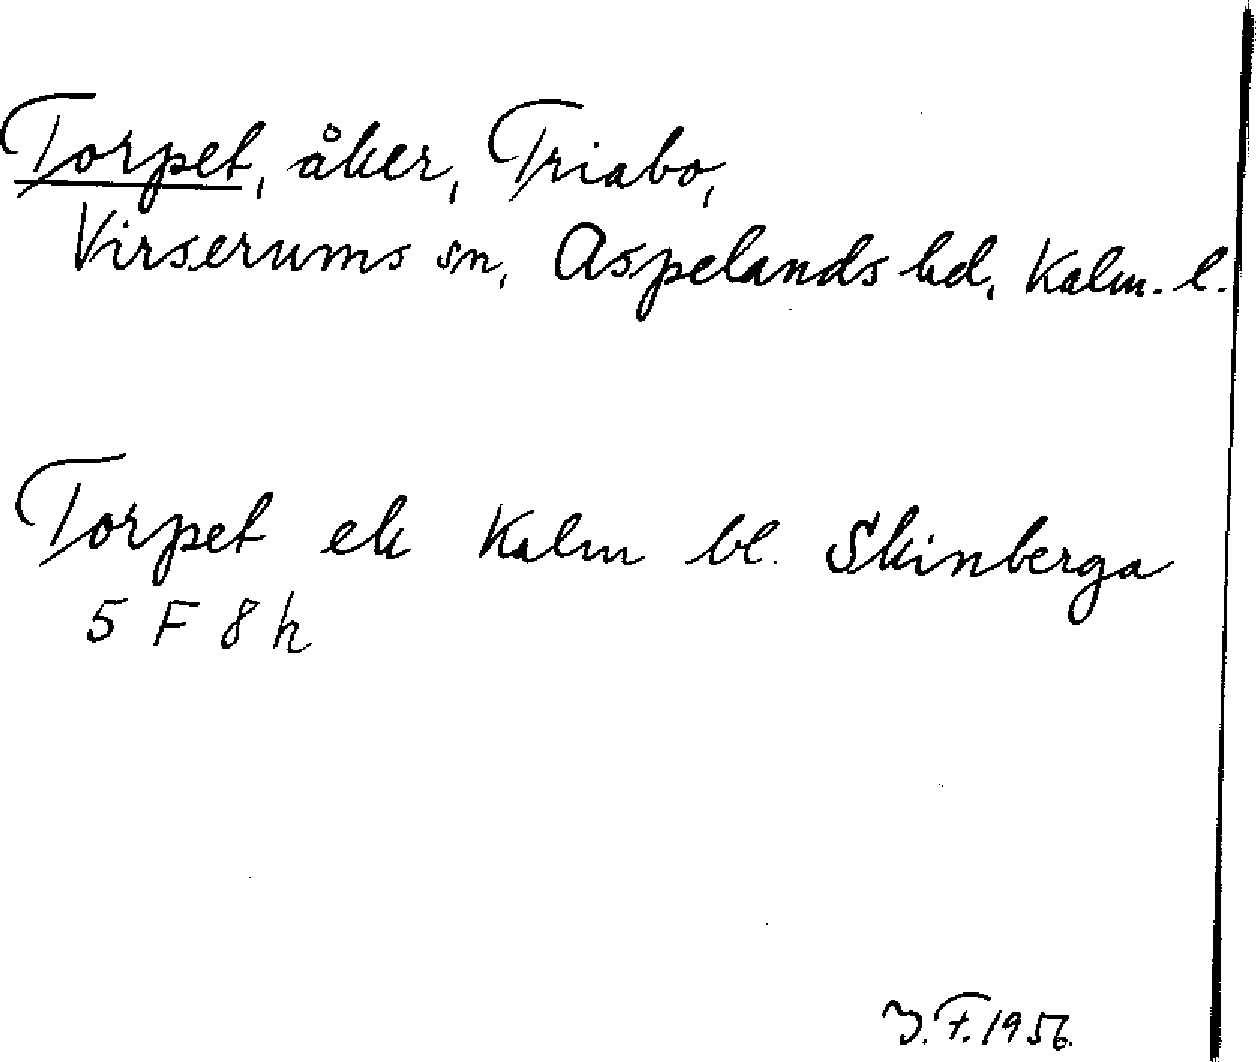 Torpet, åker, Triabo,
Virserums sn, Aspelands hd, Kalm. l.
Torpet ek Kalm bl. Skinberga
5 F 8 h
F. 1956.